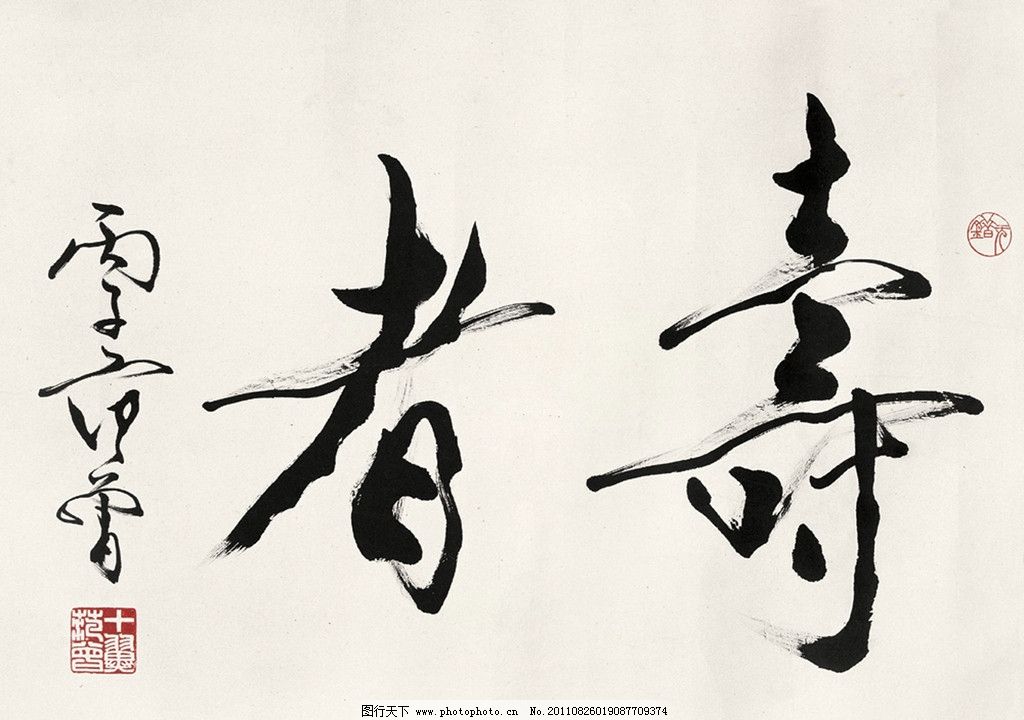 壽者
丙子范曾
十翼范曾
图行天下 www.photophoto.cn No.20110826019087709374